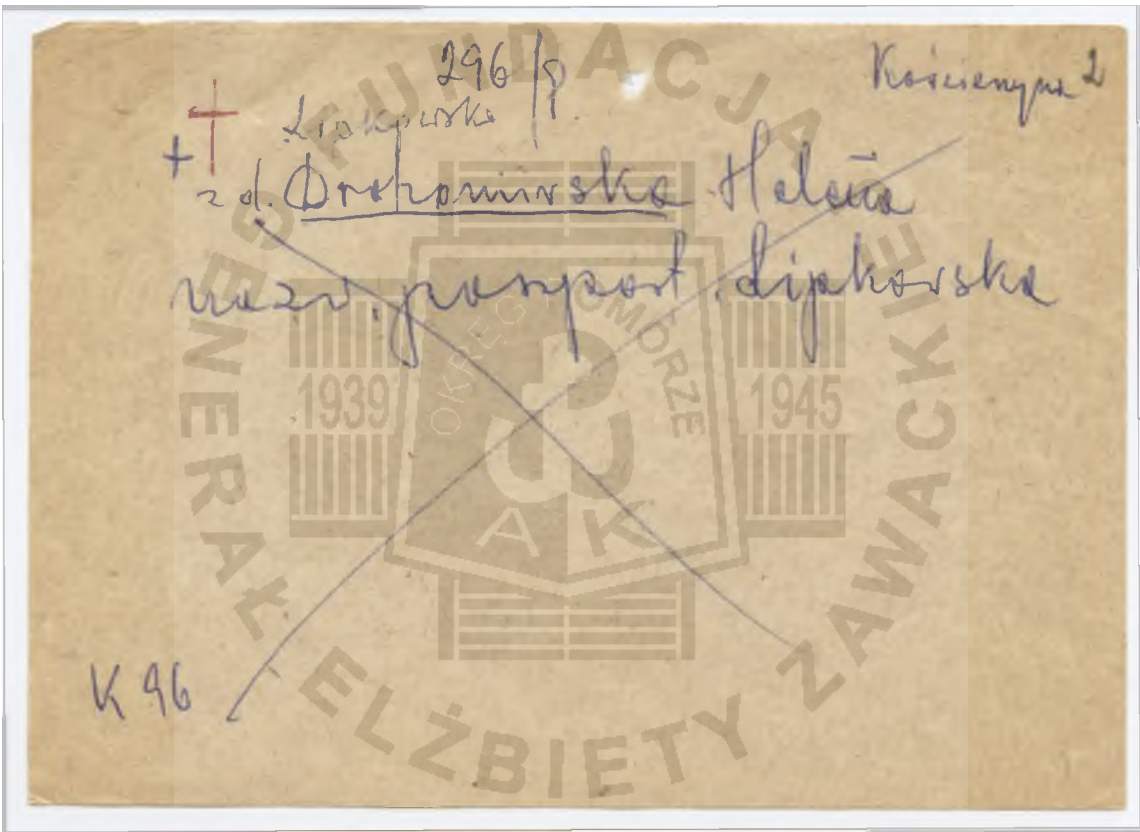 296/P. Kościerzyna 2
Lipkowska
+ z d. Drohomirska Helena
nazw. paszport. Lipkowska
K 96
FUNDACJA
GENERAŁ ELŻBIETY ZAWACKIEJ
OKRĘG POMORZE
1939 1945
AK